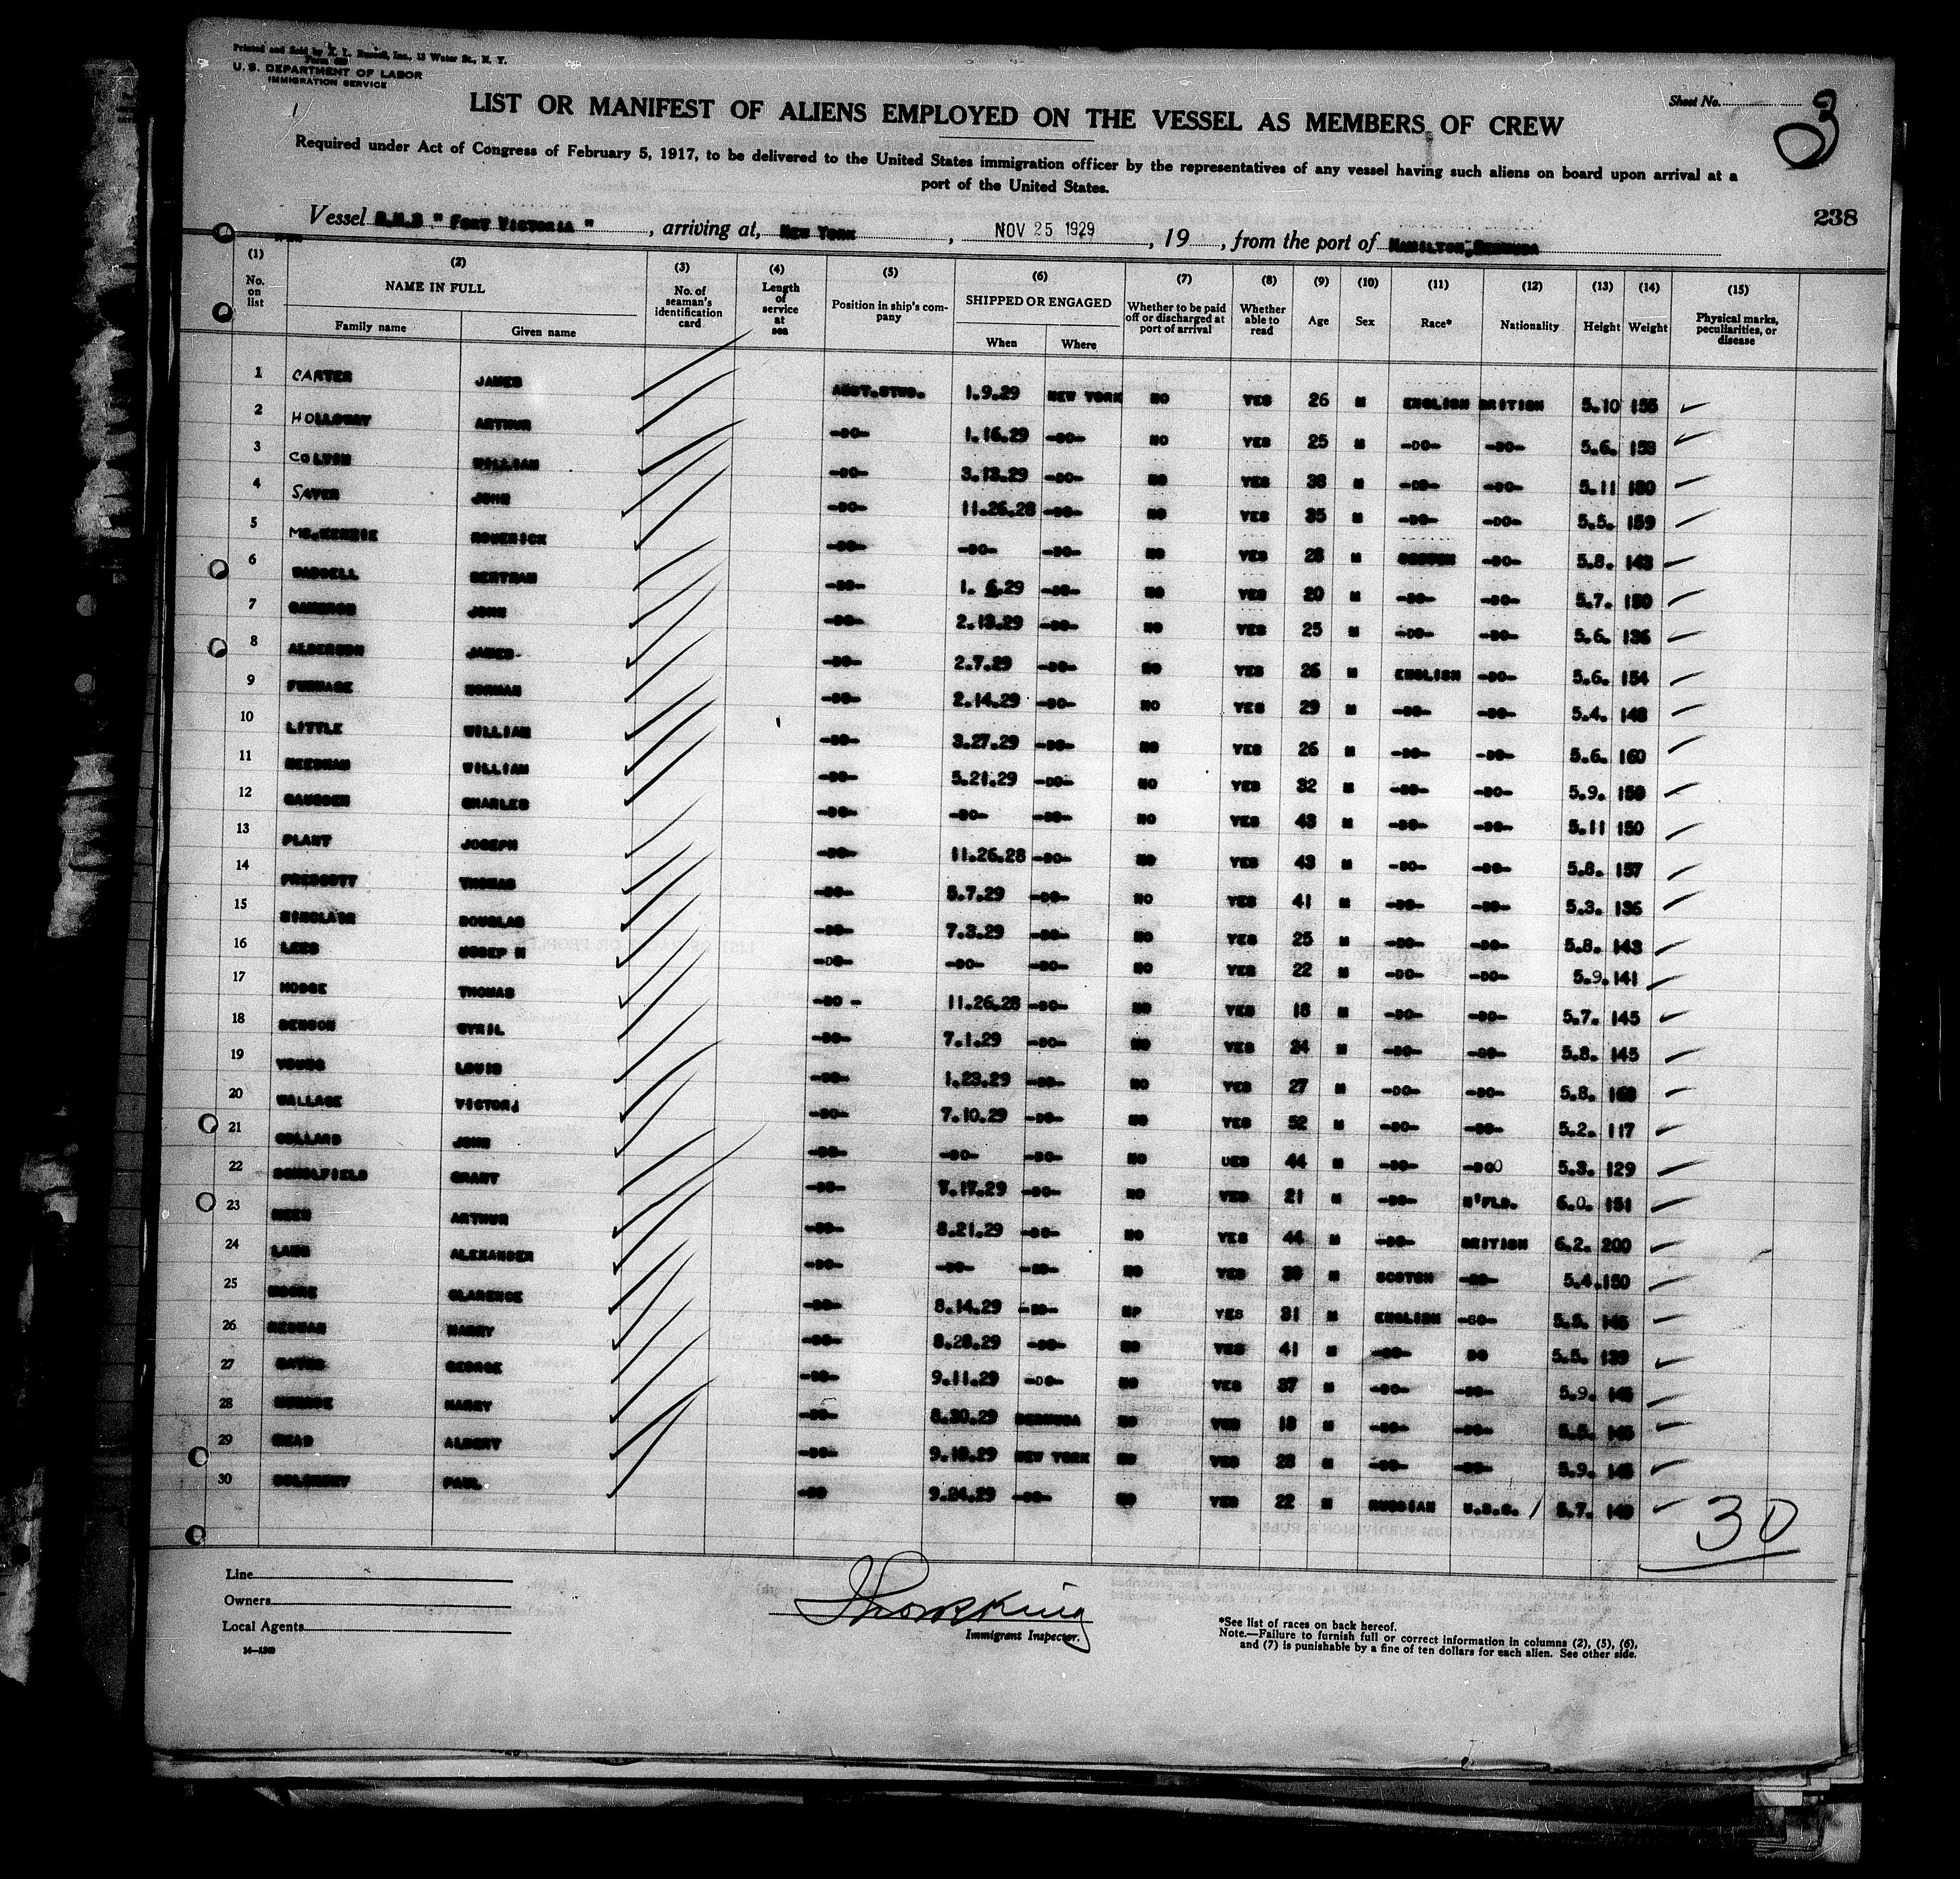 Printed and Sold by E. L. Russell, Inc., 13 Water St., N. Y.
U. S. DEPARTMENT OF LABOR
IMMIGRATION SERVICE
Sheet No. 3
LIST OR MANIFEST OF ALIENS EMPLOYED ON THE VESSEL AS MEMBERS OF CREW
Required under Act of Congress of February 5, 1917, to be delivered to the United States immigration officer by the representatives of any vessel having such aliens on board upon arrival at a
port of the United States.
238
Vessel "FORT VICTORIA", arriving at, NEW YORK, NOV 25 1929, 19 , from the port of HAMILTON, BERMUDA
(1) (2) (3) (4) (5) (6) (7) (8) (9) (10) (11) (12) (13) (14) (15)
No. on list NAME IN FULL Family name Given name No. of seaman's identification card Length of service at sea Position in ship's company SHIPPED OR ENGAGED When Where Whether to be paid off or discharged at port of arrival Whether able to read Age Sex Race* Nationality Height Weight Physical marks, peculiarities, or disease
1 CARTER JAMES ASST.STWD. 1.9.29 NEW YORK NO YES 26 M ENGLISH BRITISH 5.10 155
2 HOLLOWAY ARTHUR -DO- 1.16.29 -DO- NO YES 25 M -DO- -DO- 5.6. 158
3 COLVIN WILLIAM -DO- 3.13.29 -DO- NO YES 38 M -DO- -DO- 5.11 180
4 SAYER JOHN -DO- 11.26.28 -DO- NO YES 35 M -DO- -DO- 5.5. 159
5 MC.KENZIE RODERICK -DO- -DO- -DO- NO YES 28 M SCOTCH -DO- 5.8. 143
6 WADDELL BERTRAM -DO- 1. 6.29 -DO- NO YES 20 M -DO- -DO- 5.7. 150
7 CAMERON JOHN -DO- 2.13.29 -DO- NO YES 25 M -DO- -DO- 5.6. 136
8 ALDERSON JAMES -DO- 2.7.29 -DO- NO YES 26 M ENGLISH -DO- 5.6. 154
9 FURNAGE NORMAN -DO- 2.14.29 -DO- NO YES 29 M -DO- -DO- 5.4. 148
10 LITTLE WILLIAM -DO- 3.27.29 -DO- NO YES 26 M -DO- -DO- 5.6. 160
11 NEEDHAM WILLIAM -DO- 5.21.29 -DO- NO YES 32 M -DO- -DO- 5.9. 150
12 GAUSDEN CHARLES -DO- -DO- -DO- NO YES 43 M -DO- -DO- 5.11 150
13 PLANT JOSEPH -DO- 11.26.28 -DO- NO YES 43 M -DO- -DO- 5.8. 157
14 PRESCOTT THOMAS -DO- 5.7.29 -DO- NO YES 41 M -DO- -DO- 5.3. 136
15 SINCLAIR DOUGLAS -DO- 7.3.29 -DO- NO YES 25 M -DO- -DO- 5.8. 143
16 LEES JOSEP H -DO- -DO- -DO- NO YES 22 M -DO- -DO- 5.9. 141
17 HODGE THOMAS -DO - 11.26.28 -DO- NO YES 18 M -DO- -DO- 5.7. 145
18 BENSON CYRIL -DO- 7.1.29 -DO- NO YES 24 M -DO- -DO- 5.8. 145
19 YOUNG LOUIS -DO- 1.23.29 -DO- NO YES 27 M -DO- -DO- 5.8. 168
20 WALLACE VICTOR -DO- 7.10.29 -DO- NO YES 52 M -DO- -DO- 5.2. 117
21 COLLARD JOHN -DO- -DO- -DO- NO UES 44 M -DO- -DO 5.3. 129
22 SCHOLFIELD GRANT -DO- 7.17.29 -DO- NO YES 21 M -DO- N'FLD. 6.0. 151
23 ARTHUR -DO- 8.21.29 -DO- NO YES 44 M -DO- BRITISH 6.2. 200
24 ALEXANDER -DO- -DO- -DO- NO YES M SCOTCH -DO- 5.4. 150
25 MOORE CLARENCE -DO- 8.14.29 -DO- NP YES 31 M ENGLISH -DO- 5.5. 145
26 REDMAN HARRY -DO- 8.28.29 -DO- NO YES 41 M -DO- DO 5.5. 139
27 GEORGE -DO- 9.11.29 -DO- NO YES 37 M -DO- -DO- 5.9. 145
28 HARRY -DO- 8.30.29 BERMUDA NO YES 18 M -DO- -DO- 5.5. 145
29 ALBERT -DO- 9.18.29 NEW YORK NO YES 23 M -DO- -DO- 5.9. 145
30 PAUL -DO 9.24.29 -DO- NO YES 22 M RUSSIAN 5.7. 140
30
Line
Owners
Local Agents
Immigrant Inspector.
*See list of races on back hereof.
Note.—Failure to furnish full or correct information in columns (2), (5), (6),
and (7) is punishable by a fine of ten dollars for each alien. See other side.